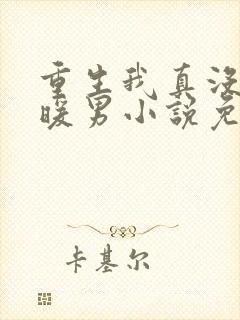 重生我真没
暖男小説免
卡基尔